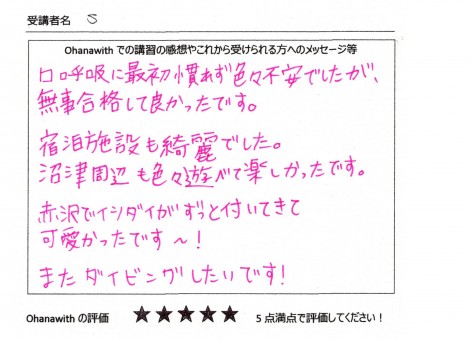 受講者名 S
Ohanawith での講習の感想やこれから受けられる方へのメッセージ等
口呼吸に最初慣れず色々不安でしたが、
無事合格して良かったです。
宿泊施設も綺麗でした。
沼津周辺も色々遊べて楽しかったです。
赤沢でイシダイがずっと付いてきて
可愛かったです～！
またダイビングしたいです！
Ohanawith の評価 ★★★★★ 5 点満点で評価してください！